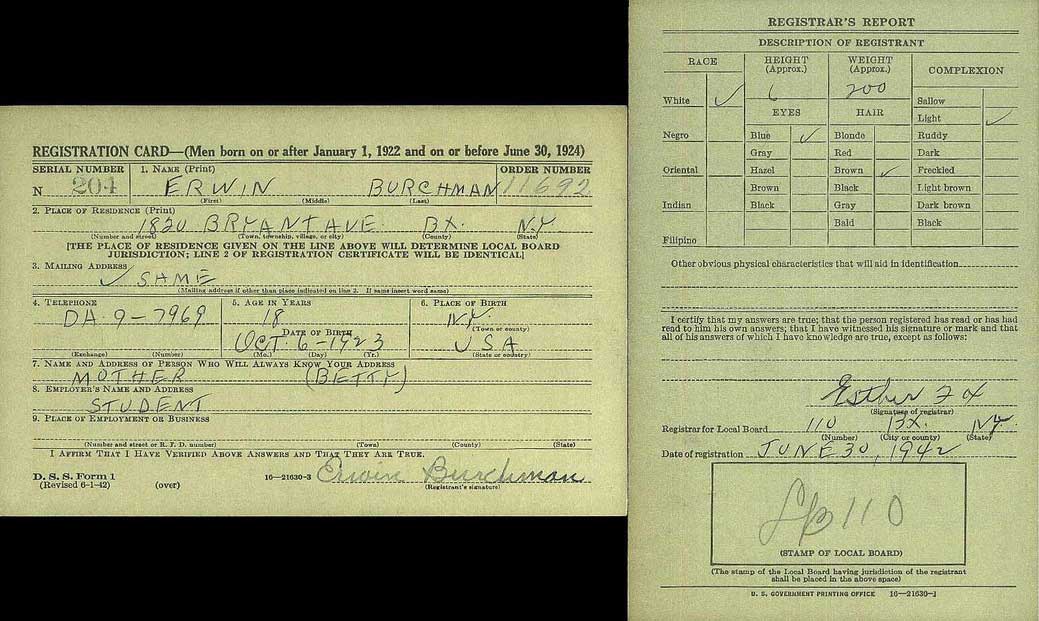 REGISTRATION CARD—(Men born on or after January 1, 1922 and on or before June 30, 1924)
SERIAL NUMBER 1. NAME (Print) ORDER NUMBER
N 204 ERWIN BURCHMAN 11692
(First) (Middle) (Last)
2. PLACE OF RESIDENCE (Print)
1820 BRYANT AVE. BX. N.Y
(Number and street) (Town, township, village, or city) (County) (State)
[THE PLACE OF RESIDENCE GIVEN ON THE LINE ABOVE WILL DETERMINE LOCAL BOARD
JURISDICTION; LINE 2 OF REGISTRATION CERTIFICATE WILL BE IDENTICAL]
3. MAILING ADDRESS
✓ SAME
(Mailing address if other than place indicated on line 2. If same insert word same)
4. TELEPHONE 5. AGE IN YEARS 6. PLACE OF BIRTH
DA. 9-7969 18 N.Y.
(Town or county)
DATE OF BIRTH
OCT. 6-1923 USA
(Exchange) (Number) (Mo.) (Day) (Yr.) (State or country)
7. NAME AND ADDRESS OF PERSON WHO WILL ALWAYS KNOW YOUR ADDRESS
MOTHER (BETTY)
8. EMPLOYER'S NAME AND ADDRESS
STUDENT
9. PLACE OF EMPLOYMENT OR BUSINESS
(Number and street or R. F. D. number) (Town) (County) (State)
I AFFIRM THAT I HAVE VERIFIED ABOVE ANSWERS AND THAT THEY ARE TRUE.
D. S. S. Form 1
(Revised 6-1-42) (over) 16—21630-3 Erwin Burchman
(Registrant's signature)
REGISTRAR'S REPORT
DESCRIPTION OF REGISTRANT
RACE HEIGHT (Approx.) WEIGHT (Approx.) COMPLEXION
White ✓ 6 200 Sallow
EYES HAIR Light ✓
Negro Blue ✓ Blonde Ruddy
Gray Red Dark
Oriental Hazel Brown ✓ Freckled
Brown Black Light brown
Indian Black Gray Dark brown
Bald Black
Filipino
Other obvious physical characteristics that will aid in identification
I certify that my answers are true; that the person registered has read or has had
read to him his own answers; that I have witnessed his signature or mark and that
all of his answers of which I have knowledge are true, except as follows:
Esther Fox
(Signature of registrar)
Registrar for Local Board 110 BX. N.Y.
(Number) (City or county) (State)
Date of registration JUNE 30, 1942
LB 110
(STAMP OF LOCAL BOARD)
(The stamp of the Local Board having jurisdiction of the registrant
shall be placed in the above space)
U. S. GOVERNMENT PRINTING OFFICE 16—21630-1